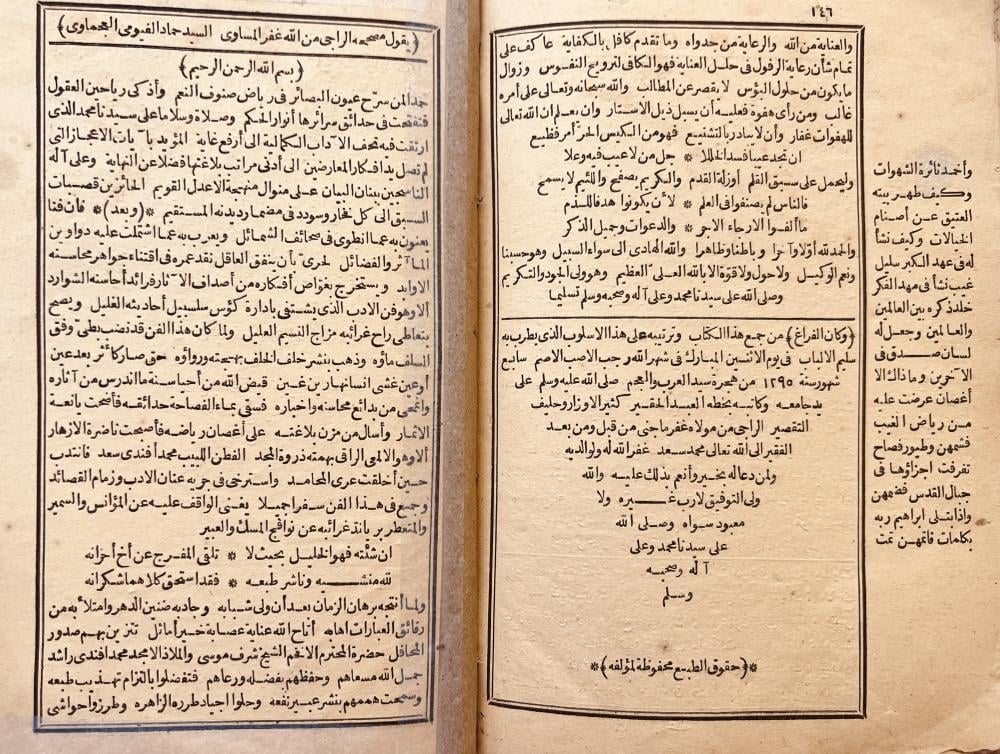 ١٤٦
والعناية من الله والرعاية من جدواه وما تقدم كافل بالكفاية عاكف على
تمام شأن رعاية الرفول في حلل العناية فهو الكافى لترويح النفوس وزوال
ما يكون من حلول البؤس لا يقصر عن المطالب والله سبحانه وتعالى على أمره
غالب ومن رأى هفوة فعليه أن يسبل ذيل الاستار وان يعلم ان الله تعالى
للهفوات غفار وأن لا يبادر بالتشنيع فهو من الكيس الحر أمر فظيع
ان تجد عيبا فسد الخللا * جل من لا عيب فيه وعلا
وليحمل على سبق القلم أوزلة القدم والكريم يصفح واللئيم لا يسمح
فالناس لم يصنفوا فى العلم * لان يكونوا هدفا للذم
ما ألفوا الا رجاء الاجر * والدعوات وجميل الذكر
والحمد لله أولا وآخرا وباطنا وظاهرا والله الهادى الى سواء السبيل وهو حسبنا
ونعم الوكيل ولا حول ولا قوة الا بالله العلى العظيم وهو ولى الجود والتكريم
وصلى الله على سيدنا محمد وعلى آله وصحبه وسلم تسليما
﴿وكان الفراغ﴾ من جمع هذا الكتاب وترتيبه على هذا الاسلوب الذى يطرب به
سليم الالباب فى يوم الاثنين المبارك فى شهر الله رجب الاصب الاصم سابع
شهور سنة ١٢٩٥ من هجرة سيد العرب والعجم صلى الله عليه وسلم على
يد جامعه وكاتبه بخطه العبد الحقير كثير الاوزار وحليف
التقصير الراجى من مولاه غفر ما جنى من قبل ومن بعد
الفقير الى الله تعالى محمد سعد غفر الله له ولوالديه
ولمن دعا له بخير وأنعم بذلك عليه والله
ولى التوفيق لا رب غيره ولا
معبود سواه وصلى الله
على سيدنا محمد وعلى
آله وصحبه
وسلم
*﴿حقوق الطبع محفوظة لمؤلفه﴾*
وأخمد ثائرة الشهوات
وكيف طهر بيته
العتيق عن أصنام
الخيالات وكيف نشأ
له فى عهد الكبر سليل
غيب نشأ فى مهد الفكر
خلد ذكره بين العالمين
والعالمين وجعل له
لسان صدق فى
الآخرين وما ذاك الا
أغصان عرضت عليه
من رياض الغيب
فشمهن وطيور فصاح
تفرقت اجزاؤها فى
جبال القدس فضمهن
واذا ابتلى ابراهيم ربه
بكلمات فاتمهن تمت
﴿يقول مصححه الراجى من الله غفر المساوى السيد حماد الفيومى العجماوى﴾
﴿بسم الله الرحمن الرحيم﴾
حمدا لمن سرح عيون البصائر فى رياض صنوف النعم وأذكى رياحين العقول
فتفتحت فى حدائق سرائرها أنوار الحكم وصلاة وسلاما على سيدنا محمد الذى
ارتقت فيه تحف الآداب الكمالية الى أرفع غاية المؤيد بآيات الاعجاز التى
لم تصل يد أفكار المعارضين الى أدنى مراتب بلاغتها فضلا عن النهاية وعلى آله
الناسجين ببنان البيان على منوال منهجه الاعدل القويم الحائزين قصبات
السبق الى كل فخار وسودد فى مضمار ديدنه المستقيم *(وبعد)* فان فنا
يعنون به عما انطوى فى صحائف الشمائل ويعرب به عما اشتملت عليه دواوين
المآثر والفضائل لحرى بأن ينفق العاقل نقد عمره فى اقتناء جواهر محاسنه
الاوابد ويستخرج بغواص أفكاره من أصداف الآثار فرائد أحاسنه الشوارد
ألا وهو فن الادب الذى يشتفى بادارة كؤس سلسبيل أحاديثه الغليل ويصح
بتعاطى راح غرائبه مزاج النسيم العليل ولما كان هذا الفن قد نضب بطى وفق
السلف ماؤه وذهب بنشر خلف الخلف بهجته ورواؤه حتى صار كأثر بعد عين
أوعين غشى انسانها ربن غين قيض الله من أحياسنة ما اندرس من آثاره
وانمحى من بدائع محاسنه وأخباره فسقى بماء الفصاحة حدائقه فأضحت يانعة
الاثمار وأسال من مزن بلاغته على أغصان رياضه فأصبحت ناضرة الازهار
ألا وهو الالمعى الراقى بهمته ذروة المجد الفطن اللبيب محمد أفندى سعد فانتدب
حين أخلقت عرى المحامد واسترخى فى جوبه عنان الادب وزمام القصائد
وجمع فى هذا الفن سفرا جميلا يغنى الواقف عليه عن المؤانس والسمير
والمتعطر بريا ند غرائبه عن نوافج المسك والعبير
ان شئته فهو الخليل بحيث لا * تلقى المفرج عن أخ أحزانه
لله منشيه وناشر طبعه * فقد استحق كلاهما شكرانه
ولما أنتجه برهان الزمان بعد أن ولى شبابه وجاد به ضنين الدهر وامتلأ به من
رقائق العبارات اهابه أتاح الله عناية عصابة خير أماثل تتزين بهم صدور
المحافل حضرة المحترم الافخم الشيخ شرف موسى والملاذ الامجد محمد افندى راشد
جمل الله مسعاهم وحفظهم بفضله ورعاهم فتفضلوا بالتزام تهذيب طبعه
وسمحت هممهم بنشر عبير نفعه وحلوا اجياد طرره الزاهره وطرزوا حواشى